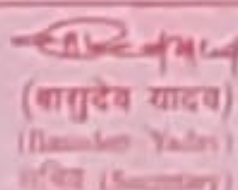 (बासुदेव यादव)
(Basudev Yadav)
सचिव (Secretary)